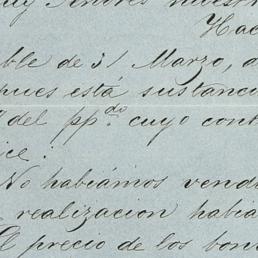 muy Señores nuestr
Hac
ble de 31 Marzo, a
pues está sustanci
del pp.do cuyo cont
ice:
No habiámos vend
realizacion habia
El precio de los bon